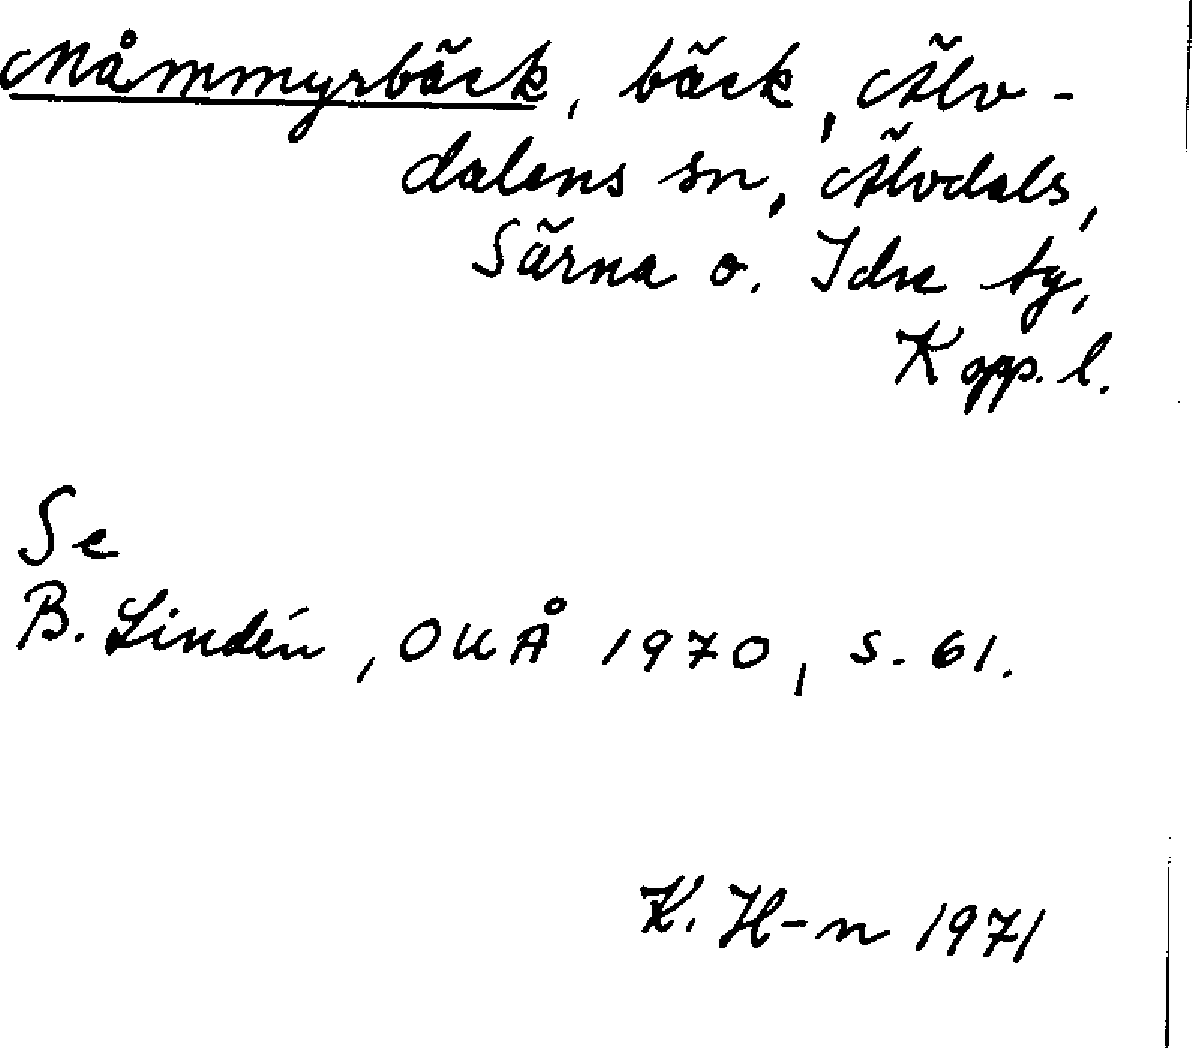 Måmmyrbäck, bäck, Älv-
dalens sn, Älvdals,
Särna o. Idre tg,
Kopps. l.
Se
B. Lindén, OUÅ 1970, s. 61.
K. H-n 1971